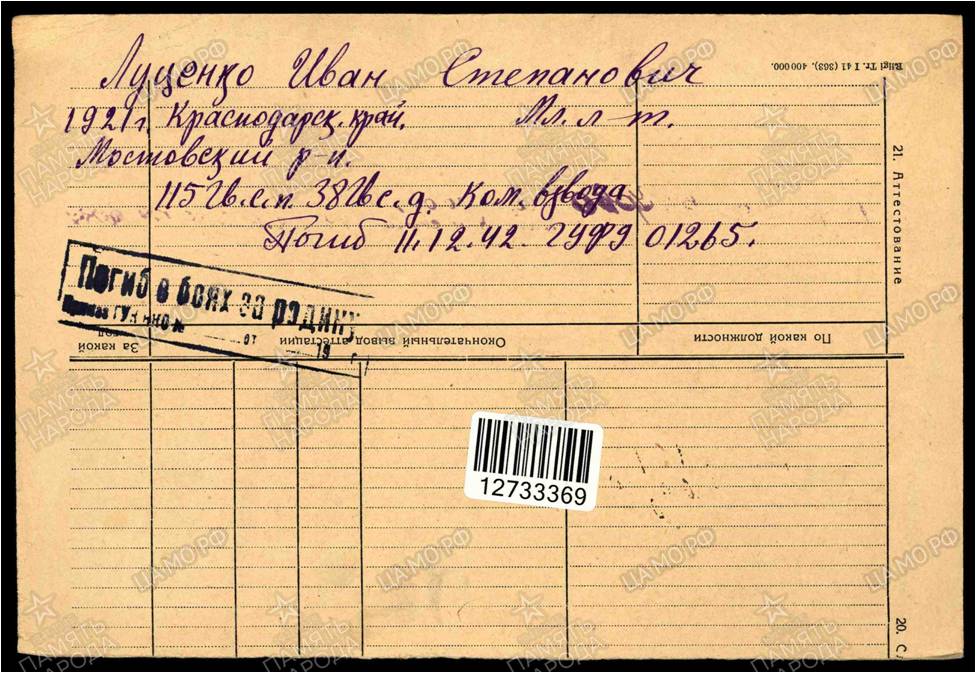 Rīgi Tr. I 41 (363). 400 000.
Луценко Иван Степанович
1921г. Краснодарск. край. Мл. л-т.
Мостовский р-н.
115 Гв.с.п. 38 Гв с.д. Ком. взвода
Погиб 11.12.42. ГУФУ 01265.
21. Аттестование
Погиб в боях за родину
Приказ ГУК НКО №
от 19 г.
За какой
Окончательный вывод аттестации
По какой должности
12733369
20.
ЦАМО.РФ
ПАМЯТЬ НАРОДА